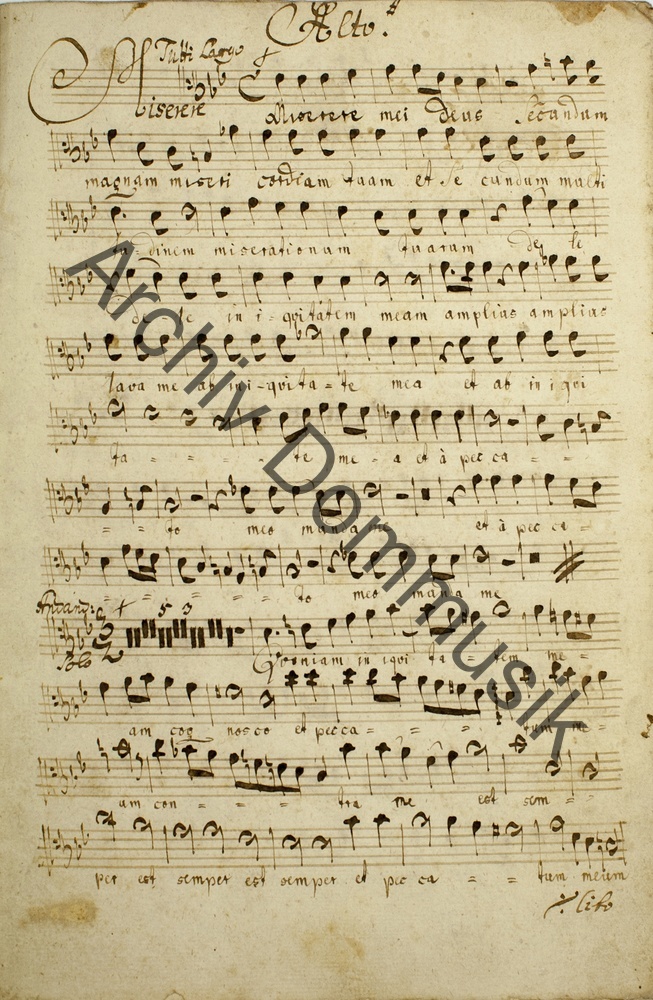 Alto.
Tutti Largo
Miserere Miserere mei Deus Secundum
magnam miseri cordiam tuam et Se cundum multi
tu-dinem miserationum tuarum de le
de le in i-qvitatem meam amplius amplius
lava me ab ini-qvita-te mea et ab in iqvi
ta - = = - te me - a et à pec ca - =
= = to meo munda me et à pec ca -
= = = = = to meo munda me
Andant: 5 3
Solo Qvoniam in iqvi ta - tem me -
am cog nosco et pecca - = = = tum me -
um con - = = = tra me est sem - =
per est semper est semper et pec ca - = tum meum
V. cito
Archiv Dommusik